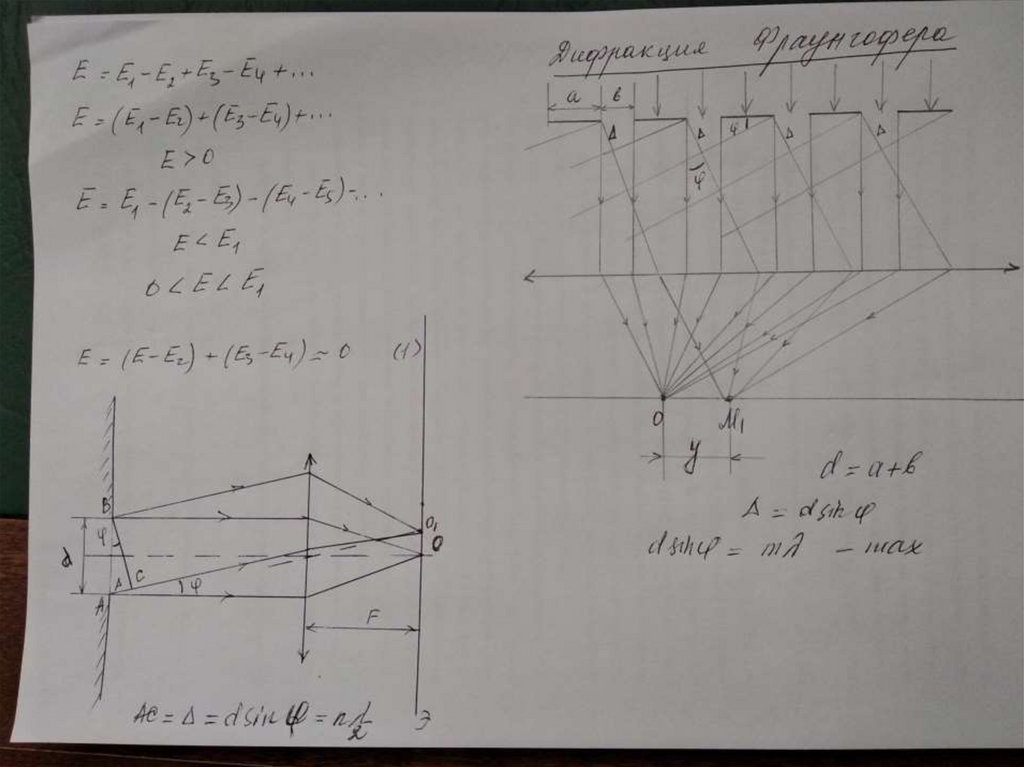 E = E₁ − E₂ + E₃ − E₄ + ...
E = (E₁ − E₂) + (E₃ − E₄) + ...
E > 0
E = E₁ − (E₂ − E₃) − (E₄ − E₅) − ...
E < E₁
0 < E < E₁
E = (E − E₂) + (E₃ − E₄) ≃ 0 (1)
B
φ
d
Δ
C
A
φ
O₁
O
F
AC = Δ = d sin φ = n λ/2
Э
Дифракция Фраунгофера
a
в
Δ
Δ
φ
Δ
Δ
φ
O
M₁
y
d = a + в
Δ = d sin φ
d sin φ = mλ − max